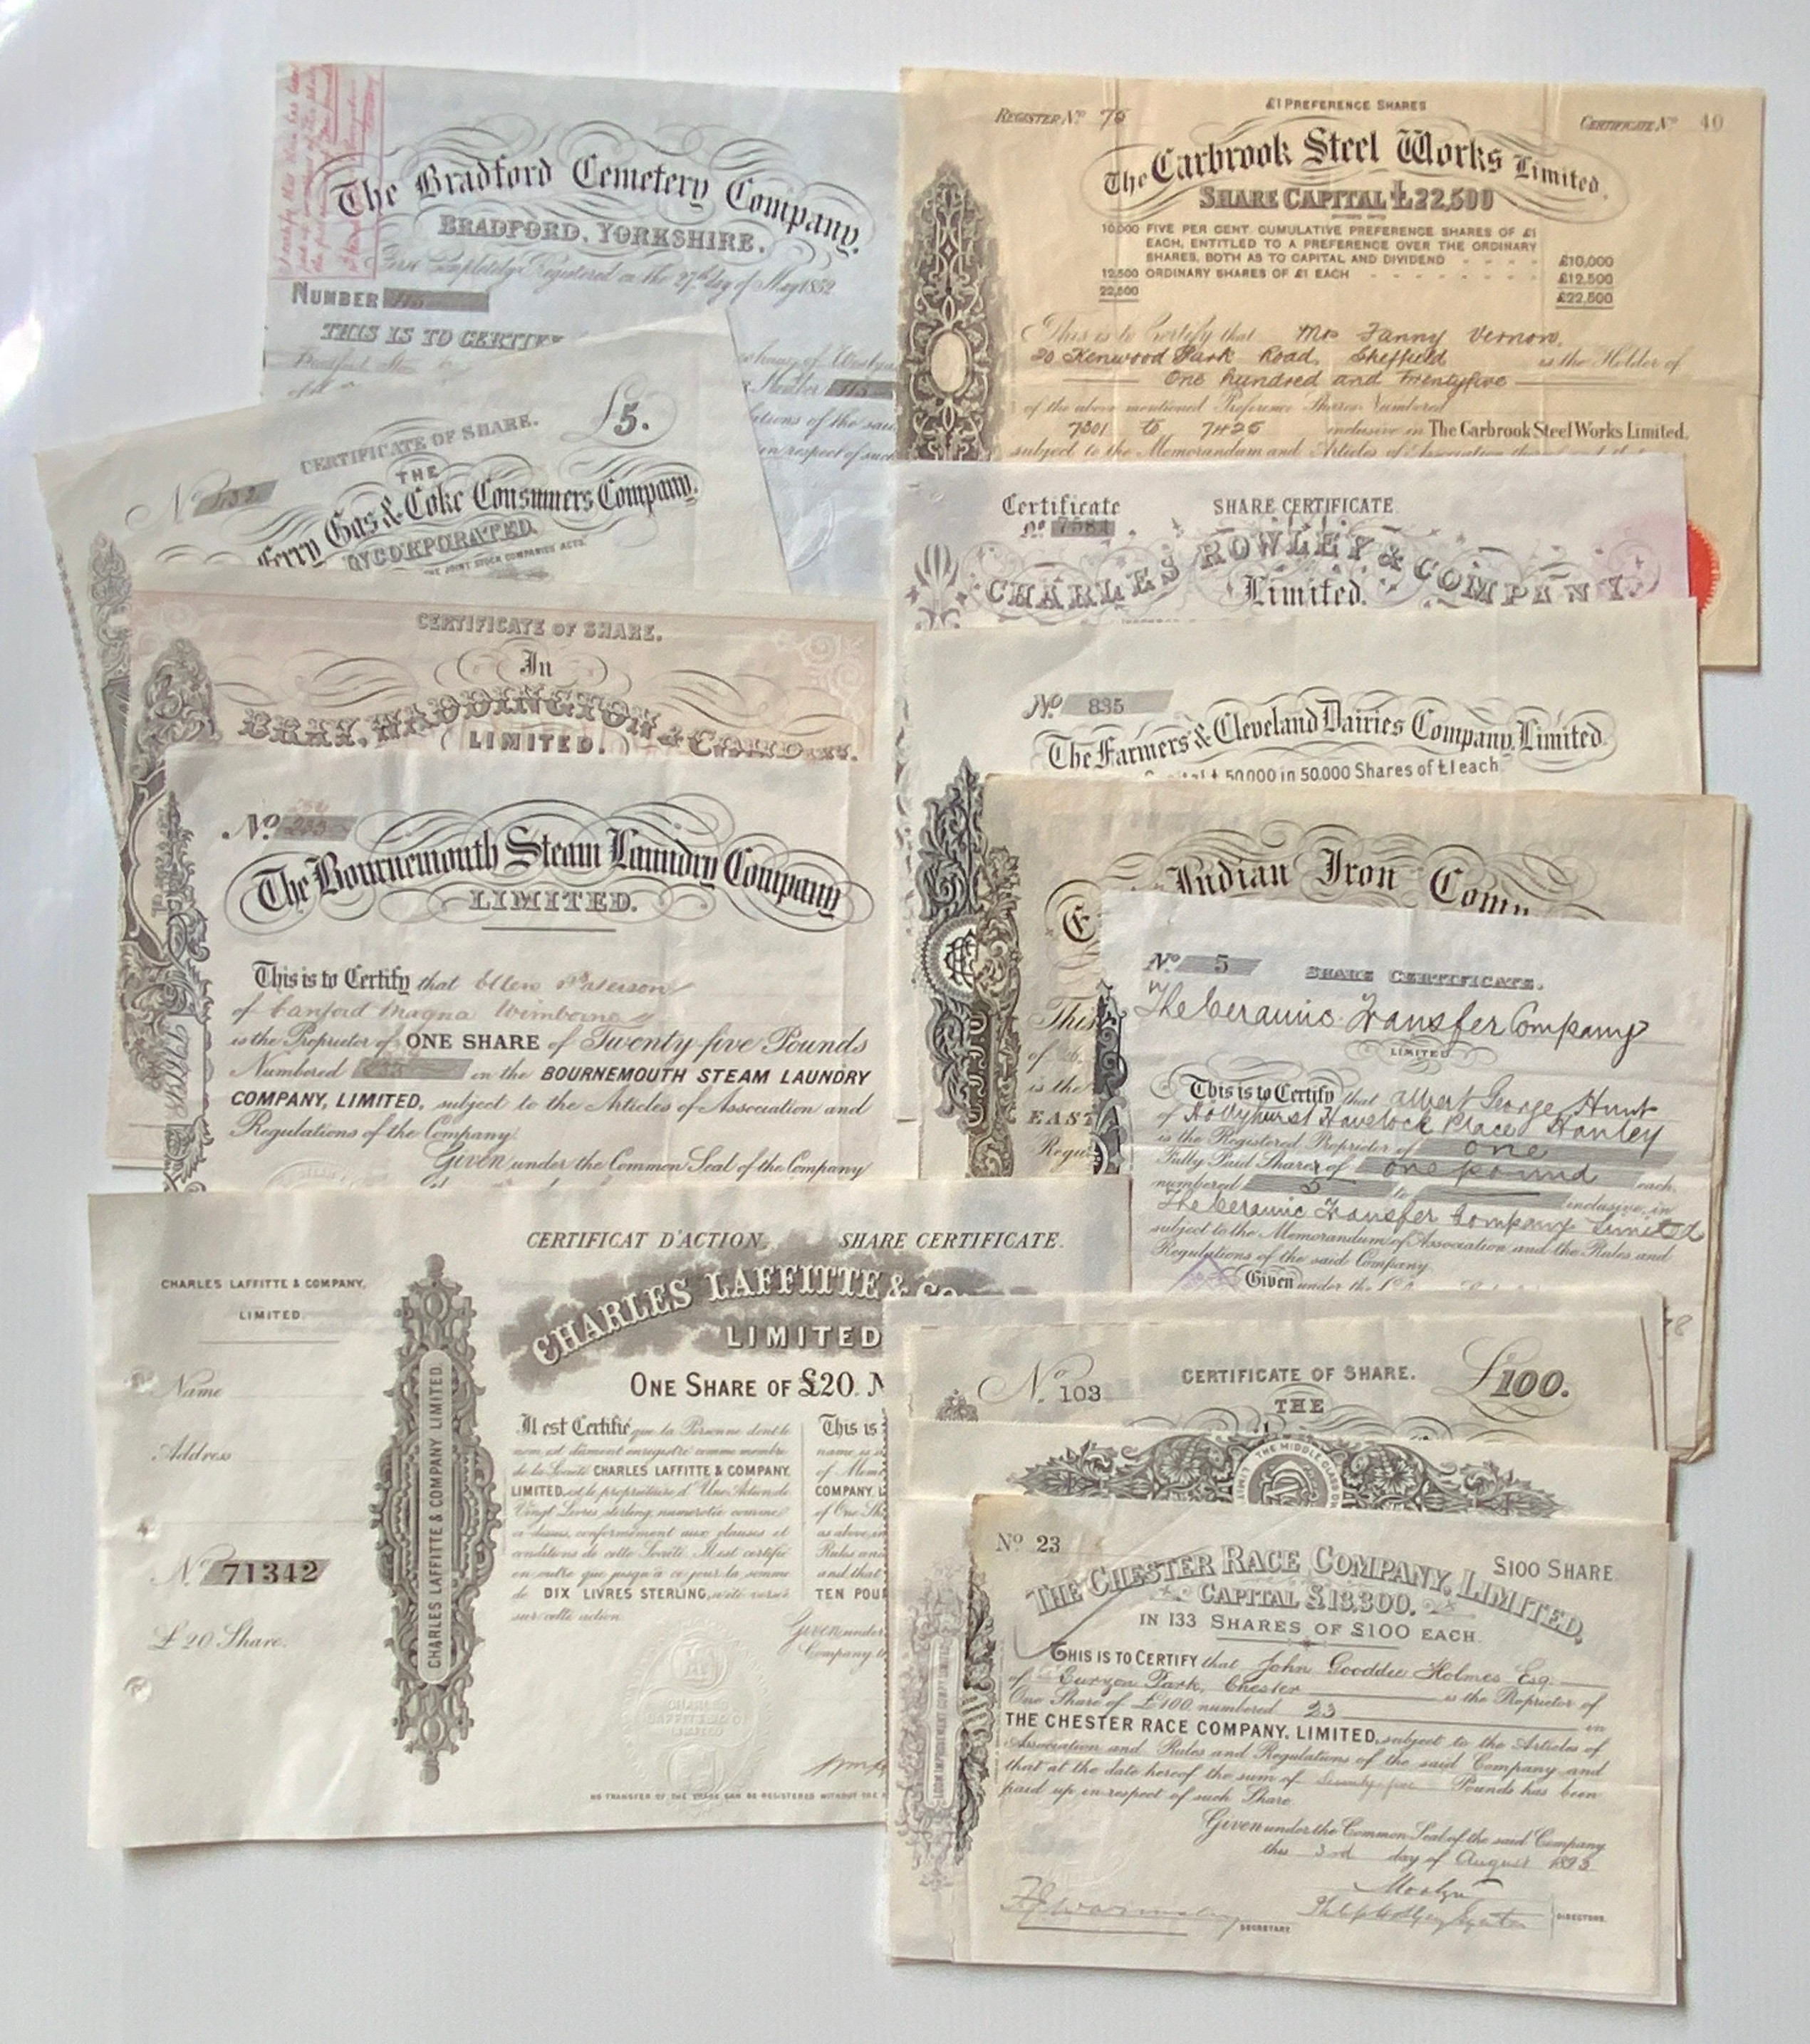 The Bradford Cemetery Company,
BRADFORD, YORKSHIRE.
First Completely Registered on the 27th day of May 1852
NUMBER 115
THIS IS TO CERTIFY
Number 115
of the said
in respect of such
£1 PREFERENCE SHARES
REGISTER No. 75
CERTIFICATE No. 40
The Carbrook Steel Works Limited.
SHARE CAPITAL £22,500
10,000 FIVE PER CENT. CUMULATIVE PREFERENCE SHARES OF £1
EACH, ENTITLED TO A PREFERENCE OVER THE ORDINARY
SHARES, BOTH AS TO CAPITAL AND DIVIDEND - - - - £10,000
12,500 ORDINARY SHARES OF £1 EACH - - - - - - - £12,500
22,500 £22,500
This is to Certify that Mrs Fanny Vernon,
20 Kenwood Park Road, Sheffield is the Holder of
One hundred and Twentyfive
of the above mentioned Preference Shares Numbered
7301 to 7425 inclusive in The Carbrook Steel Works Limited,
subject to the Memorandum and Articles of Association
CERTIFICATE OF SHARE. £5.
No. 432
THE
Ferry Gas & Coke Consumers Company,
INCORPORATED.
THE JOINT STOCK COMPANIES ACTS.
Certificate
No. 7584
SHARE CERTIFICATE.
CHARLES ROWLEY & COMPANY,
Limited.
CERTIFICATE OF SHARE.
In
BRAY, WADDINGTON & COMPY.
LIMITED.
No. 835
The Farmers & Cleveland Dairies Company, Limited.
Capital £50,000 in 50,000 Shares of £1 each
No.
The Bournemouth Steam Laundry Company
LIMITED.
This is to Certify that Ellen Paterson
of Canford Magna Wimborne
is the Proprietor of ONE SHARE of Twenty five Pounds
Numbered in the BOURNEMOUTH STEAM LAUNDRY
COMPANY, LIMITED, subject to the Articles of Association and
Regulations of the Company.
Given under the Common Seal of the Company
Indian Iron
E
This
of
is the
EAST
Regu
No. 5 SHARE CERTIFICATE.
The Ceramic Transfer Company
LIMITED
This is to Certify that Albert George Hunt
of Hollyhurst Havelock Place Hanley
is the Registered Proprietor of one
Fully Paid Shares of one pound each,
numbered 5 to inclusive, in
The Ceramic Transfer Company Limited
subject to the Memorandum of Association and the Rules and
Regulations of the said Company.
Given under the
CERTIFICAT D'ACTION. SHARE CERTIFICATE.
CHARLES LAFFITTE & COMPANY,
LIMITED.
CHARLES LAFFITTE & CO
LIMITED
ONE SHARE OF £20. N
Name
Address
No. 71342
£20 Share.
CHARLES LAFFITTE & COMPANY, LIMITED.
Il est Certifié que la Personne dont le
nom est dûment enregistré comme membre
de la Société CHARLES LAFFITTE & COMPANY,
LIMITED, est le propriétaire d'Une Action de
Vingt Livres sterling, numérotée comme
ci-dessus, conformément aux clauses et
conditions de cette Société. Il est certifié
en outre que jusqu'à ce jour la somme
de DIX LIVRES STERLING, a été versée
sur cette action.
This is
name is
of Mem
COMPANY, L
of One Sh
as above, in
Rules and
and that
TEN POU
Given under
Company
CHARLES
LAFFITTE & CO
LIMITED
NO TRANSFER OF THE SHARE CAN BE REGISTERED WITHOUT THE
No. 103 CERTIFICATE OF SHARE. £100.
THE
THE MIDDLE CLASS
LIMIT
No. 23
£100 SHARE.
THE CHESTER RACE COMPANY, LIMITED,
CAPITAL £13,300.
IN 133 SHARES OF £100 EACH.
THIS IS TO CERTIFY that John Gooddie Holmes Esq.
of Curzon Park, Chester is the Proprietor of
One Share of £100 numbered 23 in
THE CHESTER RACE COMPANY, LIMITED, subject to the Articles of
Association and Rules and Regulations of the said Company and
that at the date hereof the sum of Seventy five Pounds has been
paid up in respect of such Share.
Given under the Common Seal of the said Company
this 3rd day of August 1893
SECRETARY
DIRECTORS.